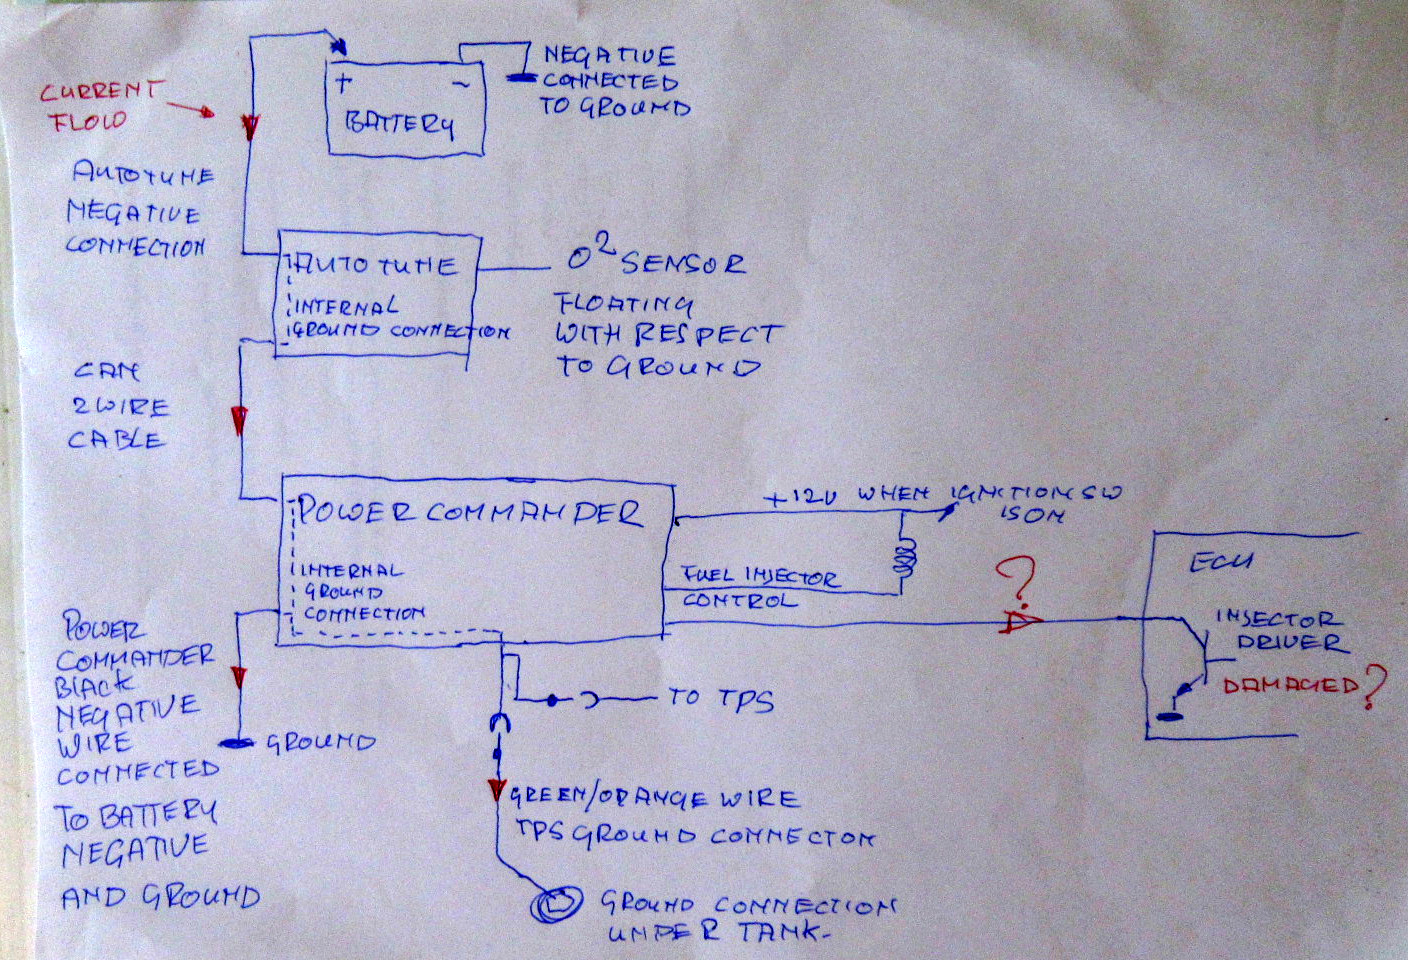 CURRENT
FLOW
+
-
BATTERY
NEGATIVE
CONNECTED
TO GROUND
AUTOTUNE
NEGATIVE
CONNECTION
AUTOTUNE
INTERNAL
GROUND CONNECTION
O2 SENSOR
FLOATING
WITH RESPECT
TO GROUND
CAN
2 WIRE
CABLE
POWER COMMANDER
INTERNAL
GROUND
CONNECTION
+12V WHEN IGNCTION SW
IS ON
FUEL INJECTOR
CONTROL
?
ECU
INSECTOR
DRIVER
DAMAGED?
POWER
COMMANDER
BLACK
NEGATIVE
WIRE
CONNECTED
TO BATTERY
NEGATIVE
AND GROUND
GROUND
TO TPS
GREEN/ORANGE WIRE
TPS GROUND CONNECTON
GROUND CONNECTION
UNDER TANK.